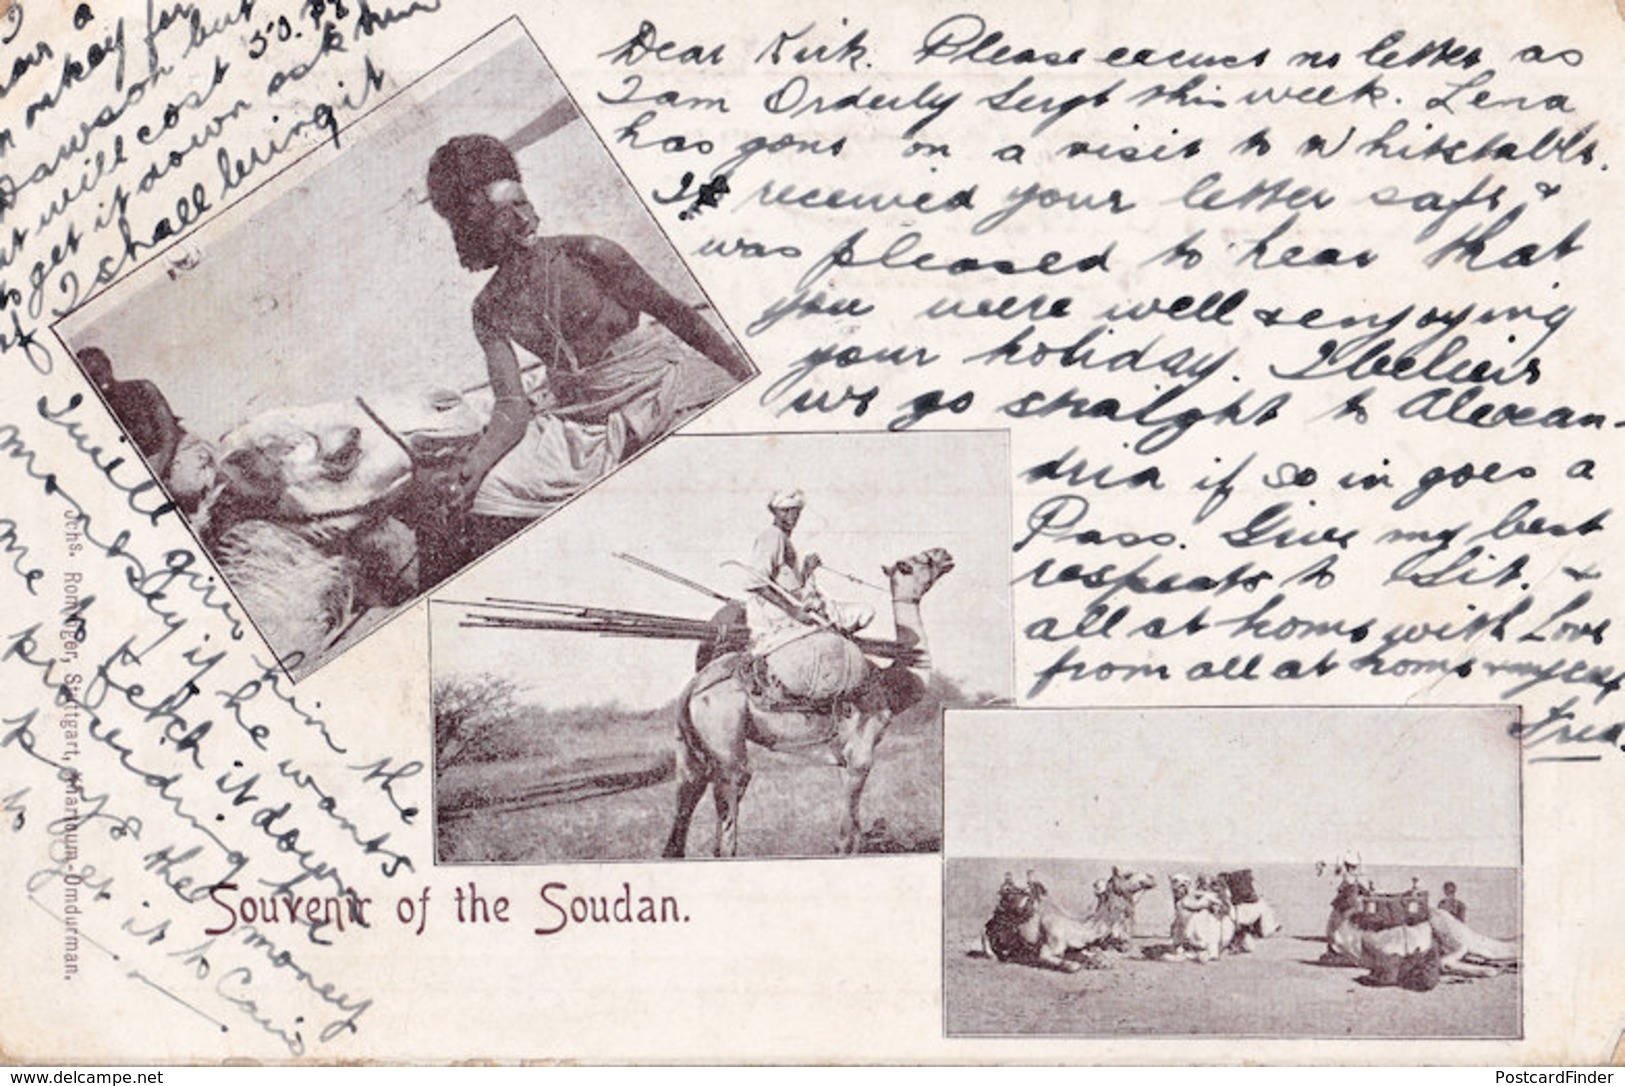 Dear Kirk. Please excuse no letter as
I am Orderly Sergt this week. Lena
has gone on a visit to Whitstable.
I received your letter safe &
was pleased to hear that
you were well & enjoying
your holiday. I believe
we go straight to Alexan-
dria if so in goes a
Pass. Give my best
respects to Sit. &
all at home with Love
from all at home & myself
Fred.
I
have a
monkey for
Dawson but
it will cost 50. P
to get it down ask him
if I shall bring it
I will give him the
monkey if he wants
me to fetch it down
providing he
pays the money
to get it to Cairo
Jchs. Rominger, Stuttgart, Khartoum-Omdurman.
Souvenir of the Soudan.
www.delcampe.net
PostcardFinder